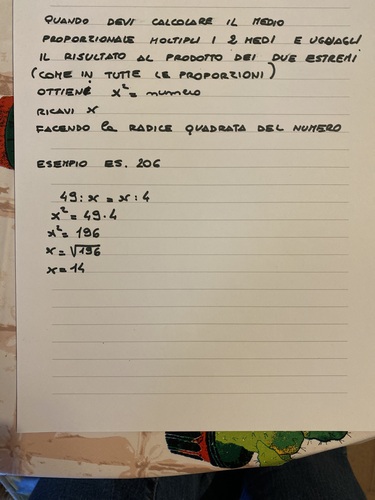 QUANDO DEVI CALCOLARE IL MEDIO
PROPORZIONALE MOLTIPLI I 2 MEDI E UGUAGLI
IL RISULTATO AL PRODOTTO DEI DUE ESTREMI
(COME IN TUTTE LE PROPORZIONI)
OTTIENI x² = numero
RICAVI x
FACENDO la RADICE QUADRATA DEL NUMERO
ESEMPIO ES. 206
49 : x = x : 4
x² = 49 · 4
x² = 196
x = √196
x = 14